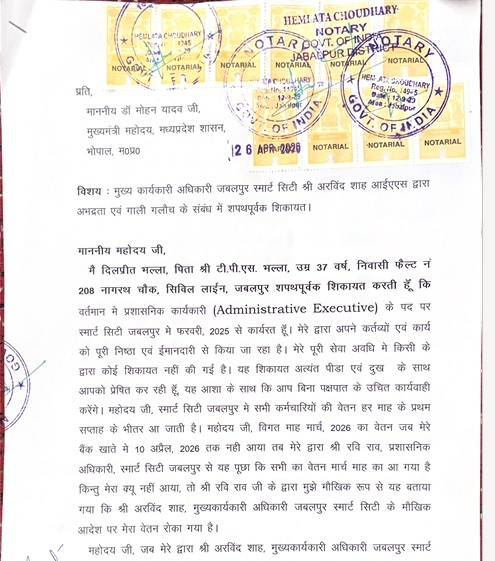 HEMLATA CHOUDHARY
NOTARY
GOVT. OF INDIA
JABALPUR DISTRICT
NOTARIAL NOTARIAL NOTARIAL NOTARIAL NOTARIAL
HEMLATA CHOUDHARY
NOTARY
GOVT. OF INDIA
NOTARY
HEMLATA CHOUDHARY
GOVT. OF INDIA
NOTARIAL NOTARIAL NOTARIAL
26 APR 2026
प्रति,
माननीय डॉ मोहन यादव जी,
मुख्यमंत्री महोदय, मध्यप्रदेश शासन,
भोपाल, म0प्र0
विषय : मुख्य कार्यकारी अधिकारी जबलपुर स्मार्ट सिटी श्री अरविंद शाह आईएएस द्वारा
अभद्रता एवं गाली गलौच के संबंध में शपथपूर्वक शिकायत।
माननीय महोदय जी,
मै दिलप्रीत भल्ला, पिता श्री टी.पी.एस. भल्ला, उम्र 37 वर्ष, निवासी फ्लैट नं
208 नागरथ चौक, सिविल लाईन, जबलपुर शपथपूर्वक शिकायत करती हूँ कि
वर्तमान मे प्रशासनिक कार्यकारी (Administrative Executive) के पद पर
स्मार्ट सिटी जबलपुर मे फरवरी, 2025 से कार्यरत हूँ। मेरे द्वारा अपने कर्तव्यों एवं कार्य
को पूरी निष्ठा एवं ईमानदारी से किया जा रहा है। मेरे पूरी सेवा अवधि मे किसी के
द्वारा कोई शिकायत नहीं की गई है। यह शिकायत अत्यंत पीडा एवं दुख के साथ
आपको प्रेषित कर रही हूँ, यह आशा के साथ कि आप बिना पक्षपात के उचित कार्यवाही
करेंगे। महोदय जी, स्मार्ट सिटी जबलपुर मे सभी कर्मचारियों की वेतन हर माह के प्रथम
सप्ताह के भीतर आ जाती है। महोदय जी, विगत माह मार्च, 2026 का वेतन जब मेरे
बैंक खाते मे 10 अप्रैल, 2026 तक नही आया तब मेरे द्वारा श्री रवि राव, प्रशासनिक
अधिकारी, स्मार्ट सिटी जबलपुर से यह पूछा कि सभी का वेतन मार्च माह का आ गया है
किन्तु मेरा क्यू नहीं आया, तो श्री रवि राव जी के द्वारा मुझे मौखिक रूप से यह बताया
गया कि श्री अरविंद शाह, मुख्यकार्यकारी अधिकारी जबलपुर स्मार्ट सिटी के मौखिक
आदेश पर मेरा वेतन रोका गया है।
महोदय जी, जब मेरे द्वारा श्री अरविंद शाह, मुख्यकार्यकारी अधिकारी जबलपुर स्मार्ट